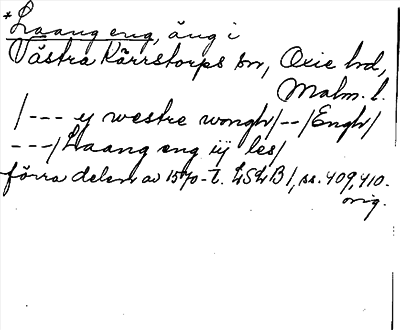 *Laang eng, äng i
Västra Kärrstorps sn, Oxie hd,
Malm. l.
/--- ij westre wongh/--/Engh/
---/Laang eng iij les/
förra delen av 1570-t. LSLB 1, ss. 409, 410.
orig.